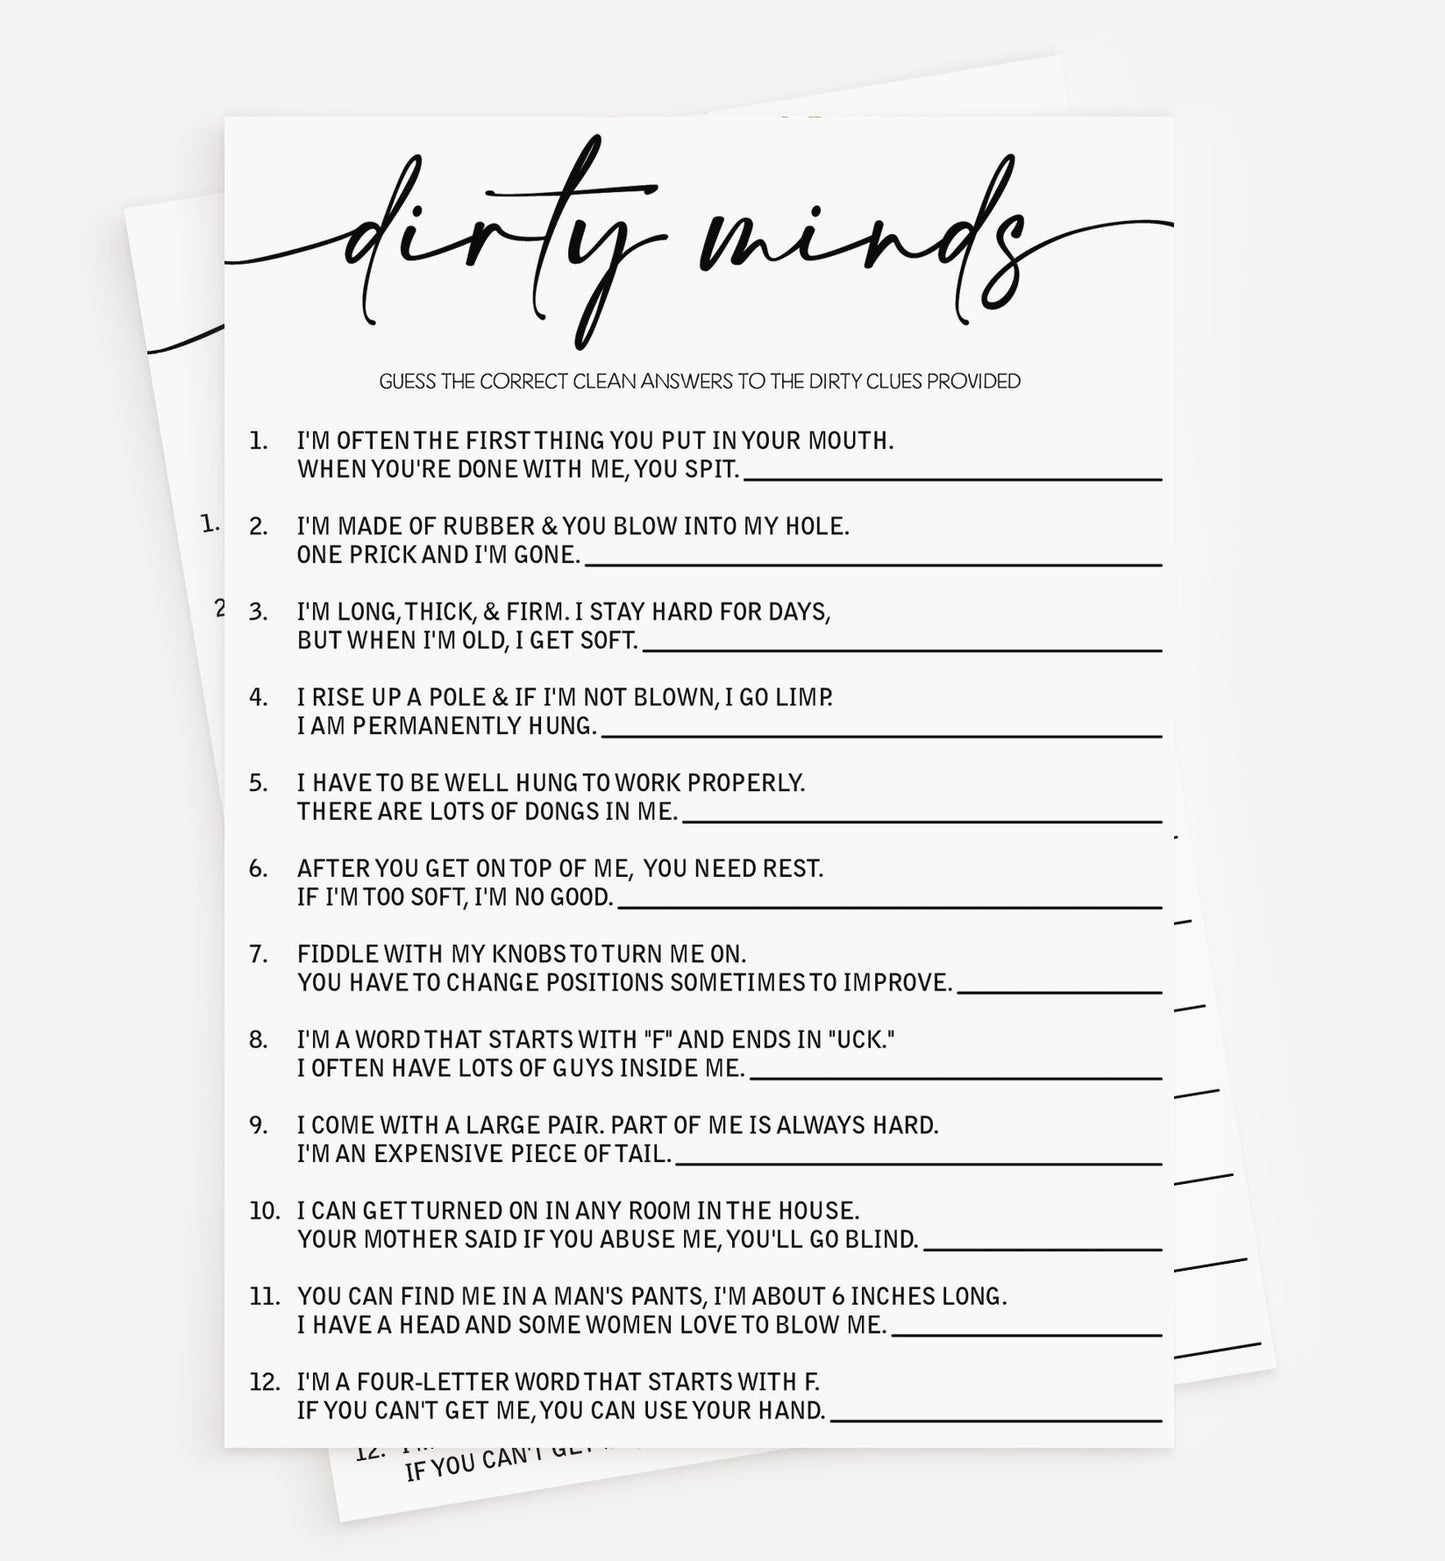 dirty minds
GUESS THE CORRECT CLEAN ANSWERS TO THE DIRTY CLUES PROVIDED
1. I'M OFTEN THE FIRST THING YOU PUT IN YOUR MOUTH.
WHEN YOU'RE DONE WITH ME, YOU SPIT.
2. I'M MADE OF RUBBER & YOU BLOW INTO MY HOLE.
ONE PRICK AND I'M GONE.
3. I'M LONG, THICK, & FIRM. I STAY HARD FOR DAYS,
BUT WHEN I'M OLD, I GET SOFT.
4. I RISE UP A POLE & IF I'M NOT BLOWN, I GO LIMP.
I AM PERMANENTLY HUNG.
5. I HAVE TO BE WELL HUNG TO WORK PROPERLY.
THERE ARE LOTS OF DONGS IN ME.
6. AFTER YOU GET ON TOP OF ME, YOU NEED REST.
IF I'M TOO SOFT, I'M NO GOOD.
7. FIDDLE WITH MY KNOBS TO TURN ME ON.
YOU HAVE TO CHANGE POSITIONS SOMETIMES TO IMPROVE.
8. I'M A WORD THAT STARTS WITH "F" AND ENDS IN "UCK."
I OFTEN HAVE LOTS OF GUYS INSIDE ME.
9. I COME WITH A LARGE PAIR. PART OF ME IS ALWAYS HARD.
I'M AN EXPENSIVE PIECE OF TAIL.
10. I CAN GET TURNED ON IN ANY ROOM IN THE HOUSE.
YOUR MOTHER SAID IF YOU ABUSE ME, YOU'LL GO BLIND.
11. YOU CAN FIND ME IN A MAN'S PANTS, I'M ABOUT 6 INCHES LONG.
I HAVE A HEAD AND SOME WOMEN LOVE TO BLOW ME.
12. I'M A FOUR-LETTER WORD THAT STARTS WITH F.
IF YOU CAN'T GET ME, YOU CAN USE YOUR HAND.
1.
2
12.
IF YOU CAN'T GET